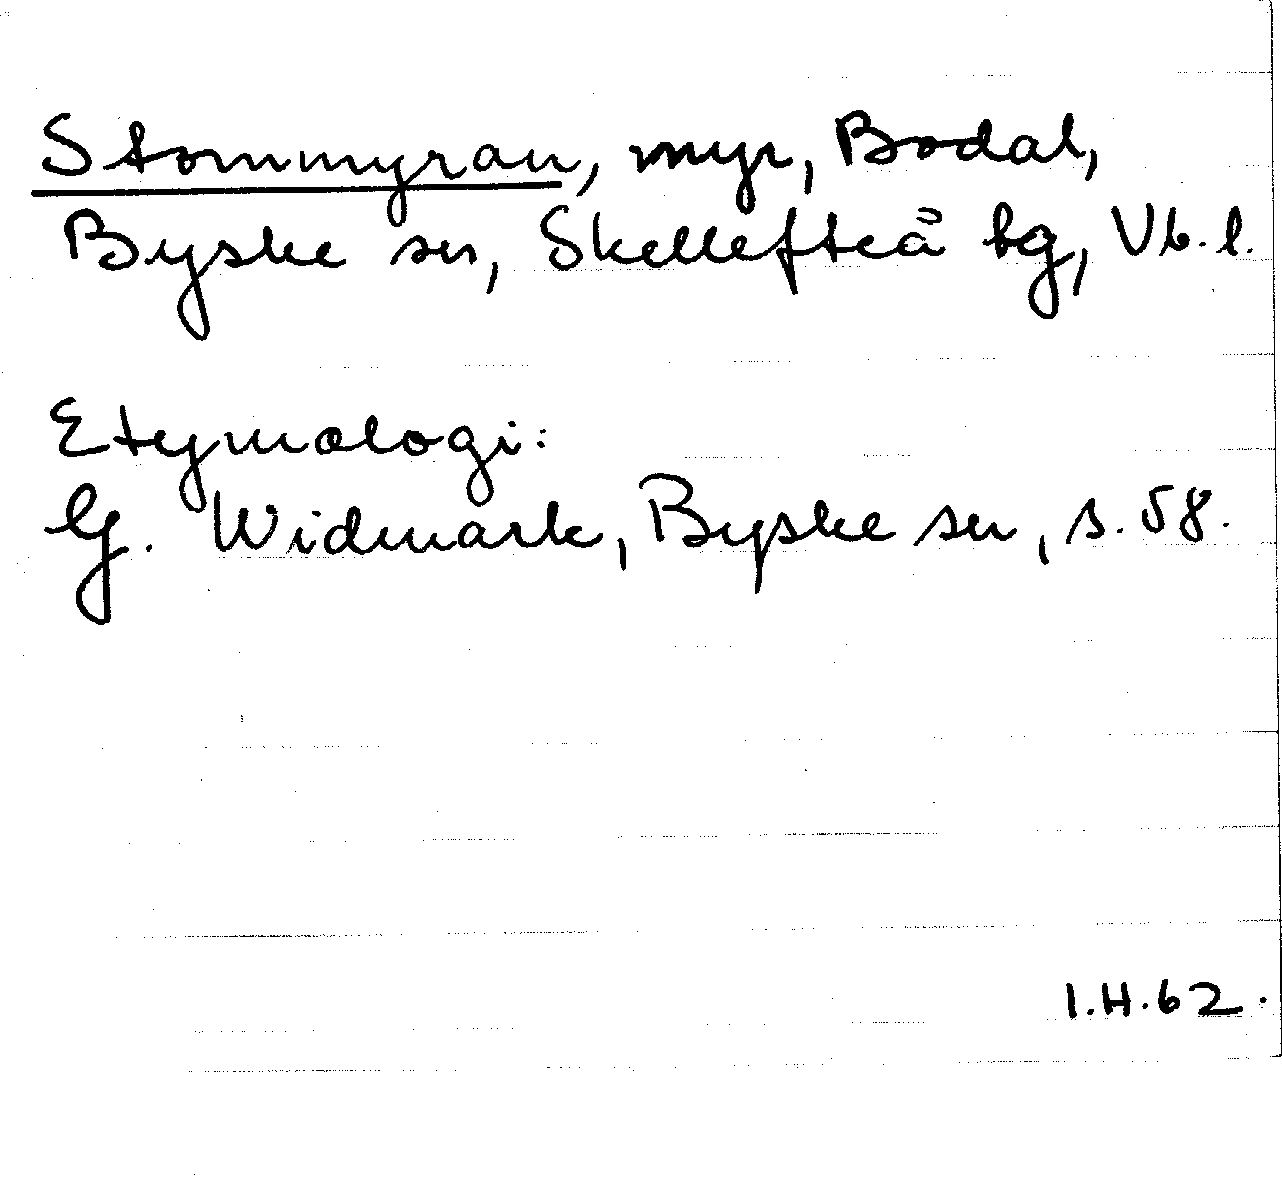 Stommyran, myr, Bodal,
Byske sn, Skellefteå tg, Vb. l.
Etymologi:
G. Widmark, Byske sn, s. 58.
I.H.62.